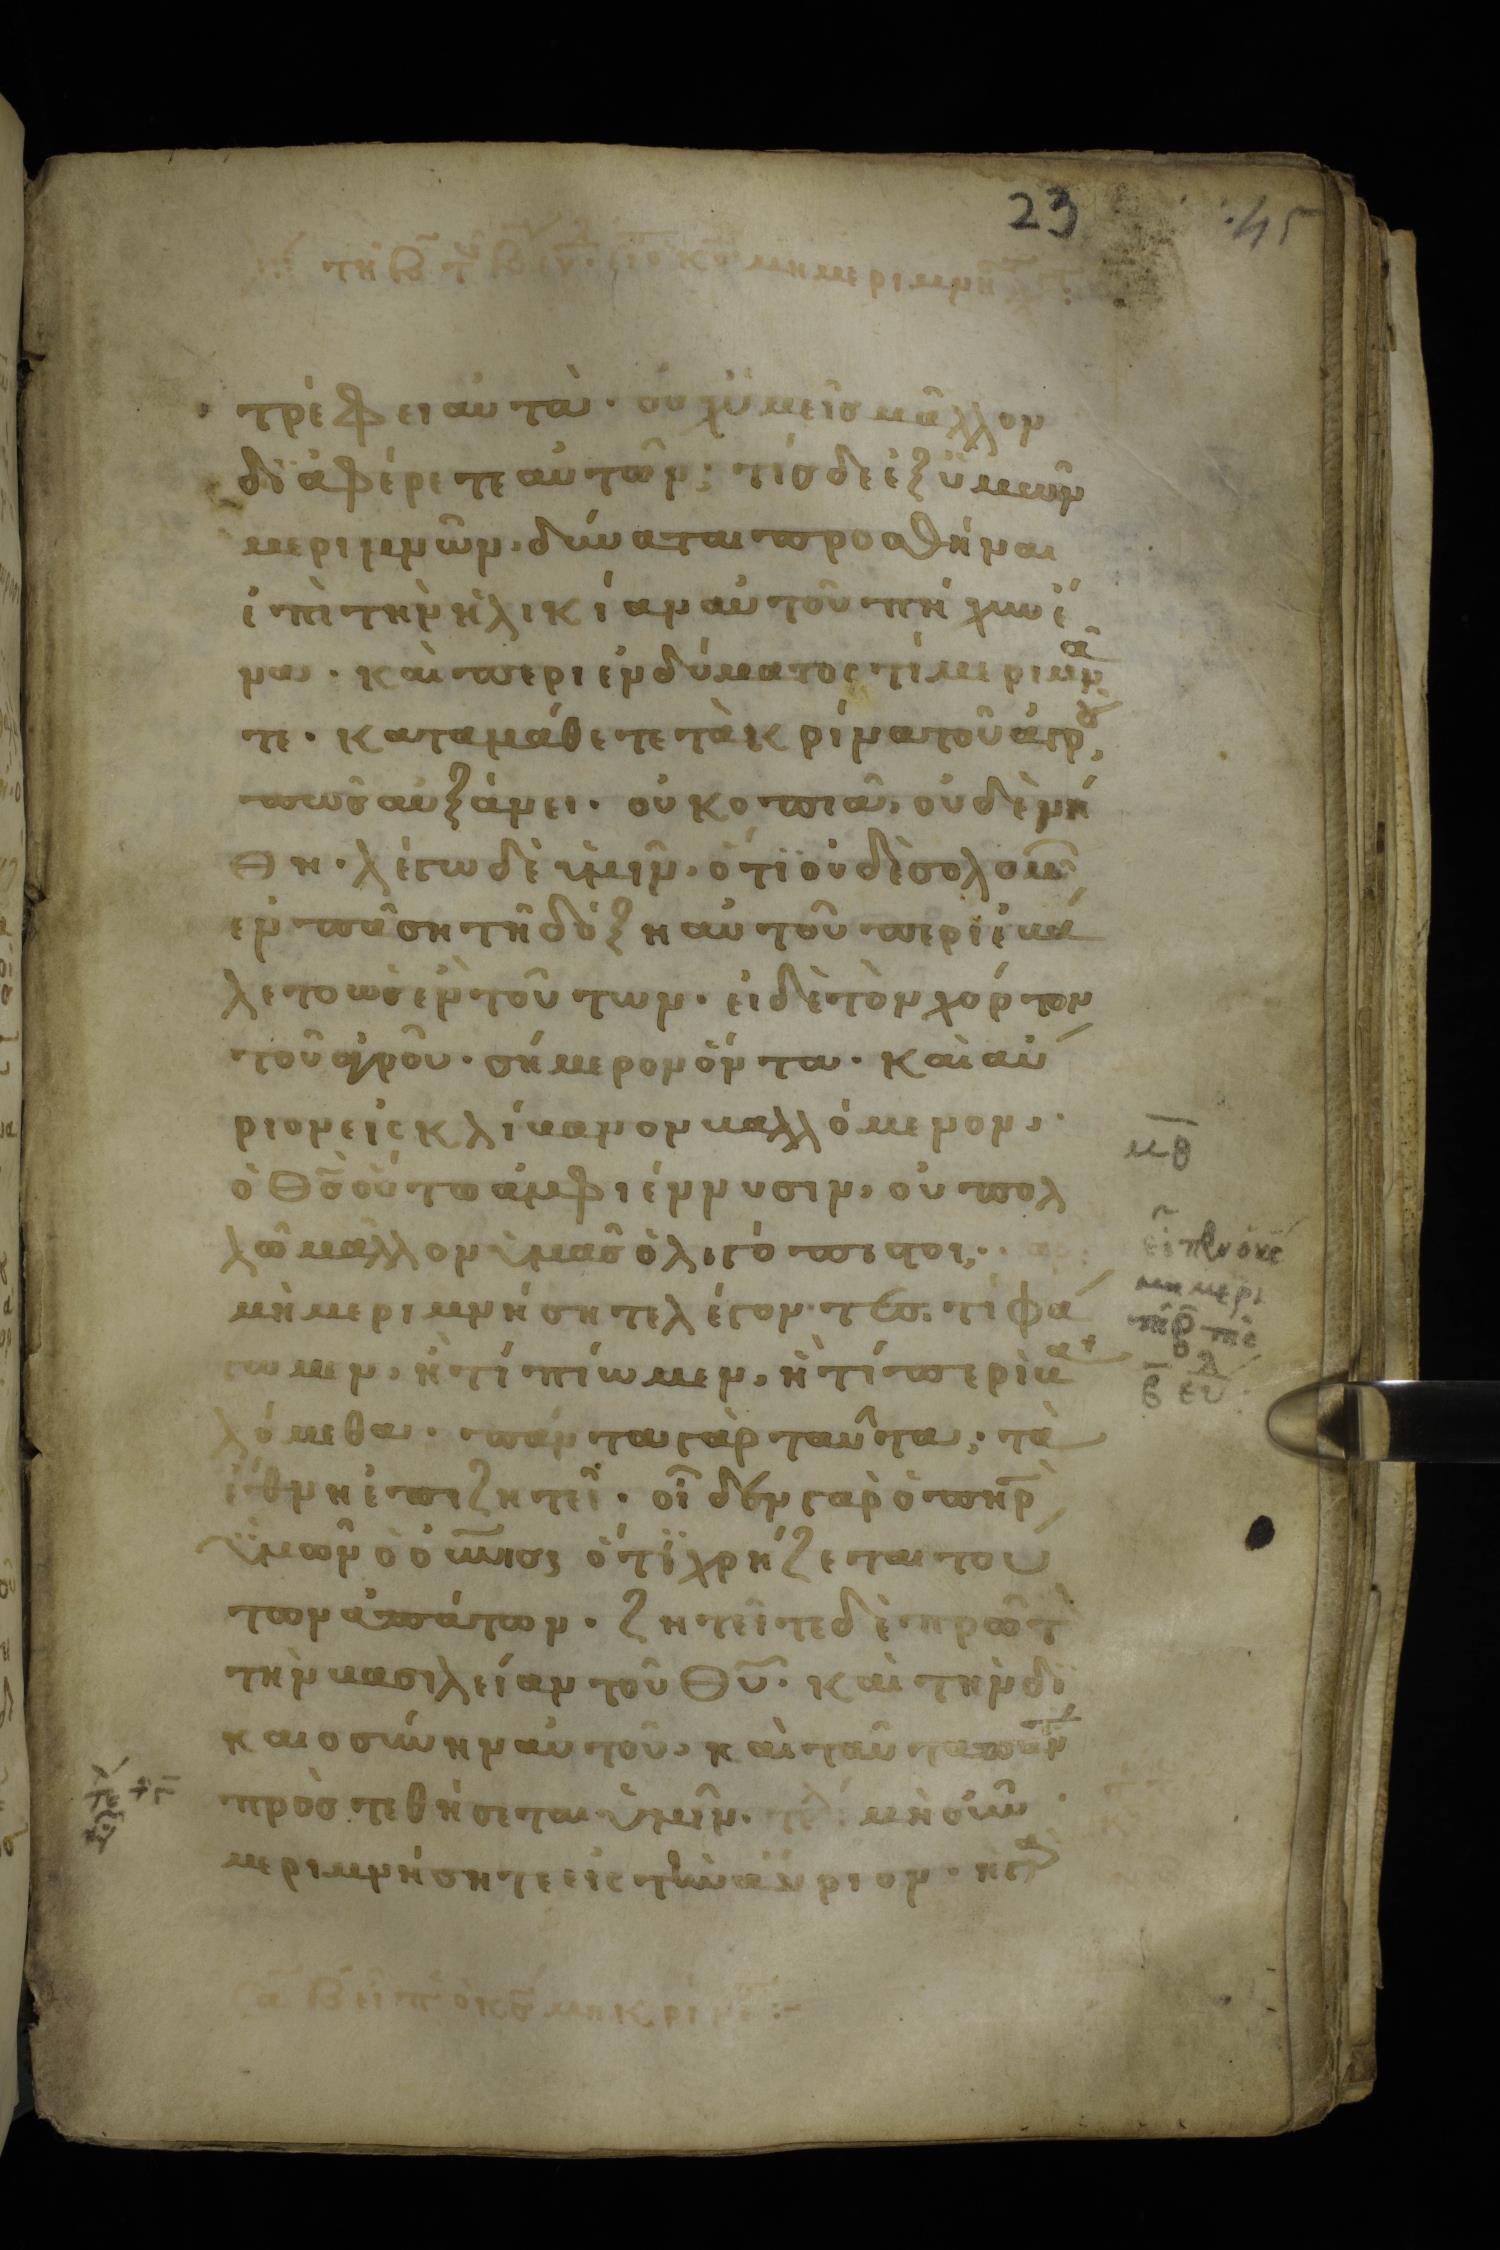 23
45
τρέφει αυτά· ουχ ϋμεῖσ μᾶλλον
διαφέρετε αυτῶν; τίσ δε εξ ϋμων
μεριμνῶν, δύναται προσθῆναι
ἐπὶ τὴν ἡλικίαν αὐτοῦ πῆχυν ἕ
να· και περι ενδύματος τί μεριμνᾶ
τε· καταμάθετε τὰ κρίνα τοῦ ἀγρου,
πωσ αὐξάνει· οὐ κοπιᾶ, οὐδὲ νή
θη· λέγω δὲ ὑμῖν, ὅτι οὐδὲ σολομῶ
εν πάση τῆ δόξη αυτοῦ περιεβά
λετο ὡσ ἐν τούτων· ει δὲ τὸν χόρτον
τοῦ ἀγροῦ· σήμερον ὄντα· καὶ αὔ
ριον εἰς κλίβανον βαλλόμενον,
ὁ θσ οὕτω ἀμφιέννυσιν, οὐ πολ
λῶ μᾶλλον ὑμᾶσ ὀλιγόπιστοι;
μὴ μεριμνήσητε λέγοντεσ· τί φά
γωμεν, ἢ τί πίωμεν, ἢ τί περιβα
λόμεθα· πάντα γὰρ ταῦτα; τὰ
ἔθνη ἐπιζητεῖ· οἶδεν γὰρ ὁ πηρ
ϋμῶν ὁ οὐνιοσ ὅτι χρήζεται του
των ἁπάντων· ζητεῖτε δὲ πρῶτ
τὴν βασιλείαν τοῦ θυ· και τὴν δι
καιοσύνην αὐτοῦ, καὶ ταῦτα παντ
πρόστεθήσεται ὑμῖν. τε μὴ οὖν
μεριμνήσητε εἰς τὴν αὔριον· ἡ γα
μθ
μη μερι